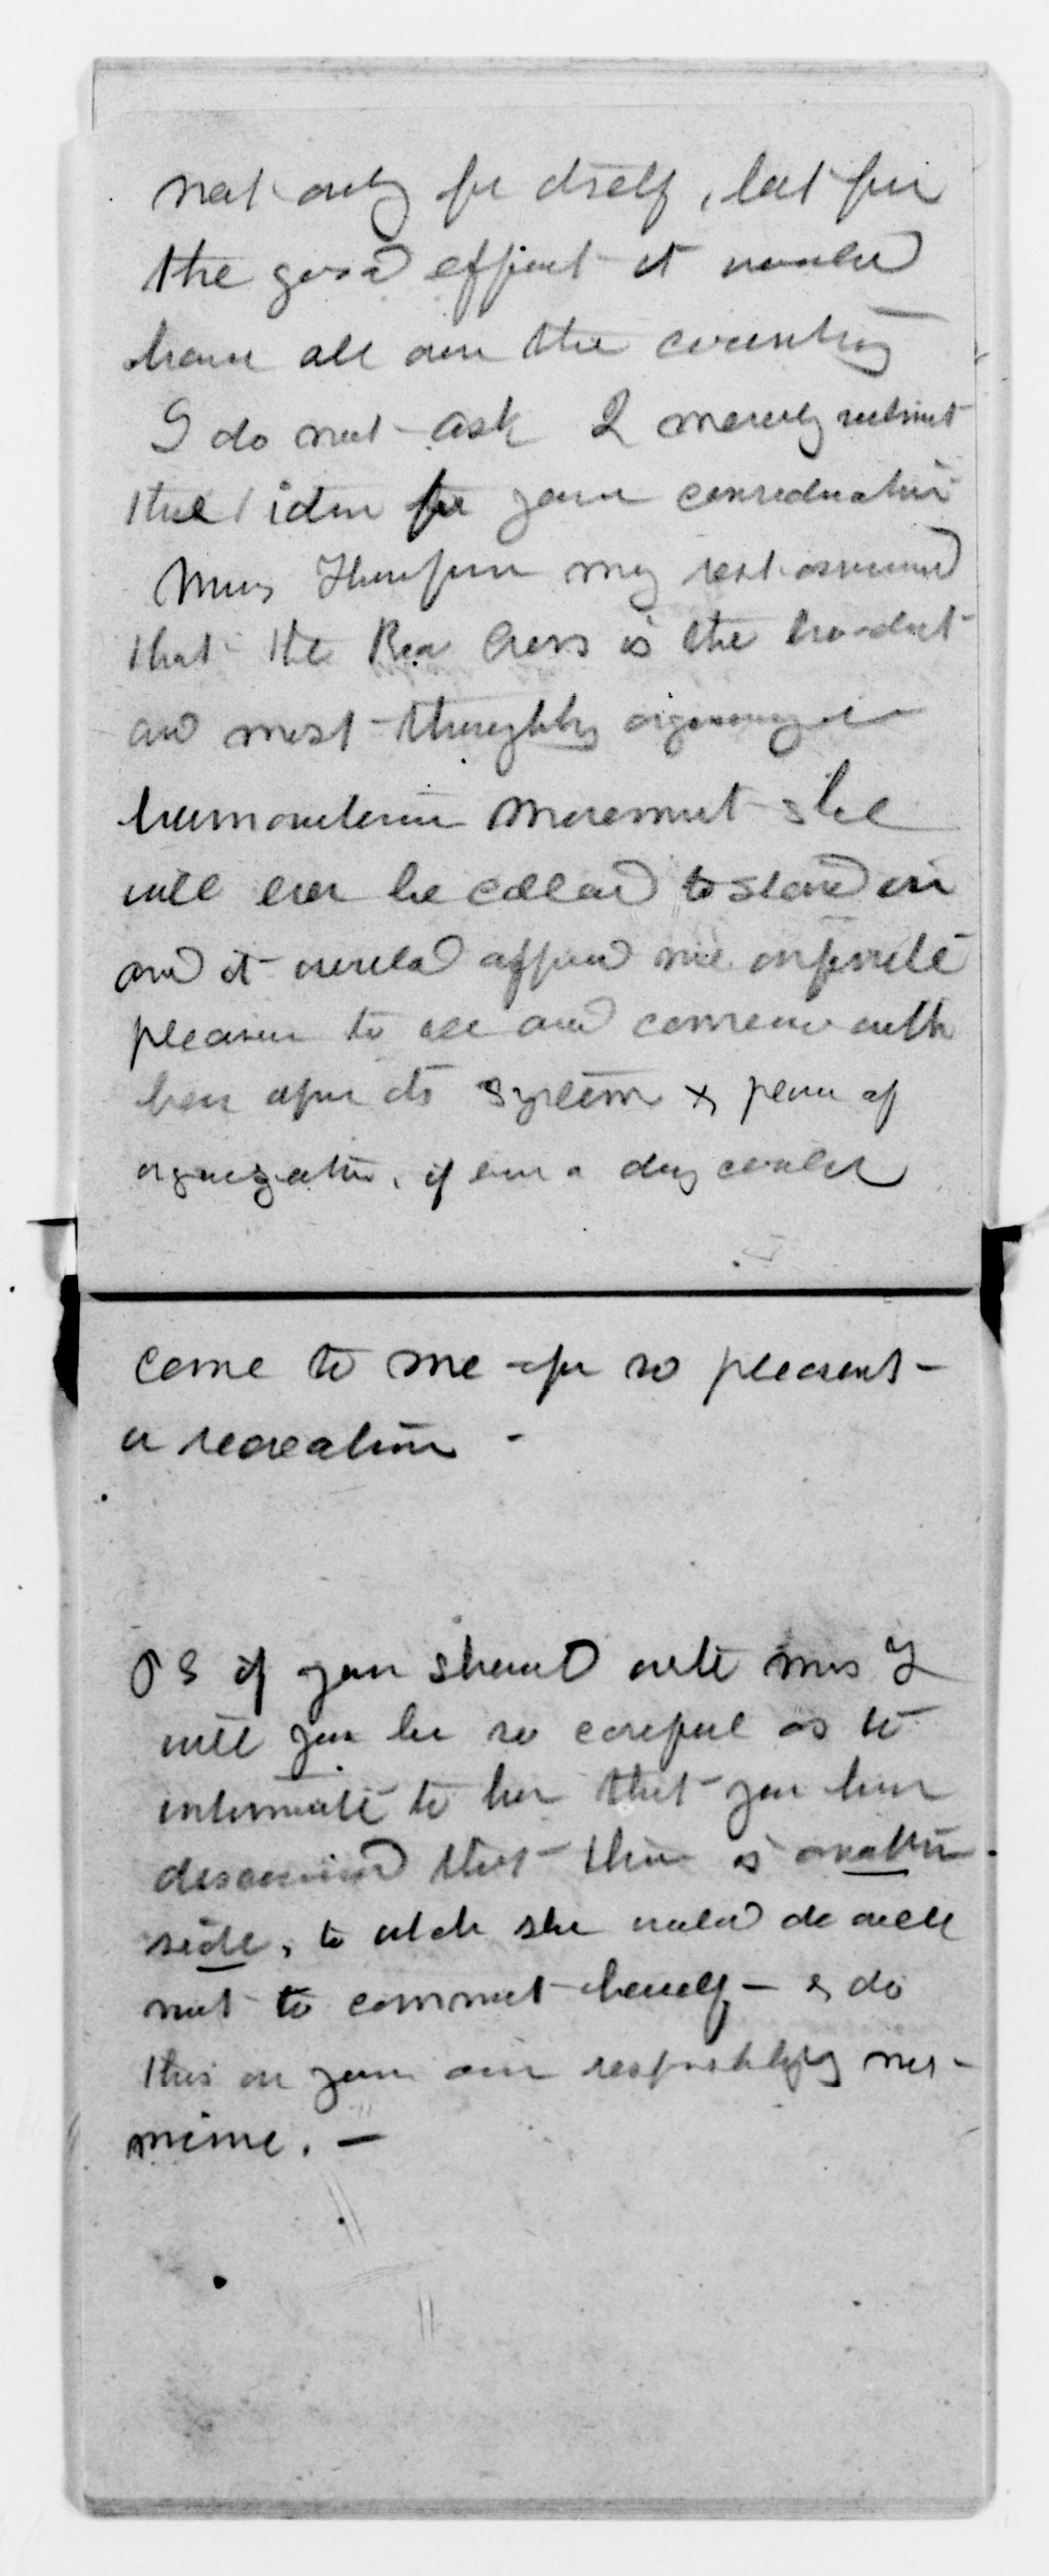 not only for itself, but for
the good effect it would
have all over the country
I do not ask I merely submit
the idea for your consideration
Mrs Thompson may rest assured
that the Red Cross is the broadest
and most thoroughly organized
humanitarian movement she
will ever be called to stand in
and it would afford me infinite
pleasure to see and converse with
her upon its system & plan of
organization, if ever a day could
come to me for so pleasant
a recreation -
P S if you should write Mrs T
will you be so careful as to
intimate to her that you have
discovered that there is another
side, to which she would do well
not to commit herself - & do
this on your own responsibility not
mine. -